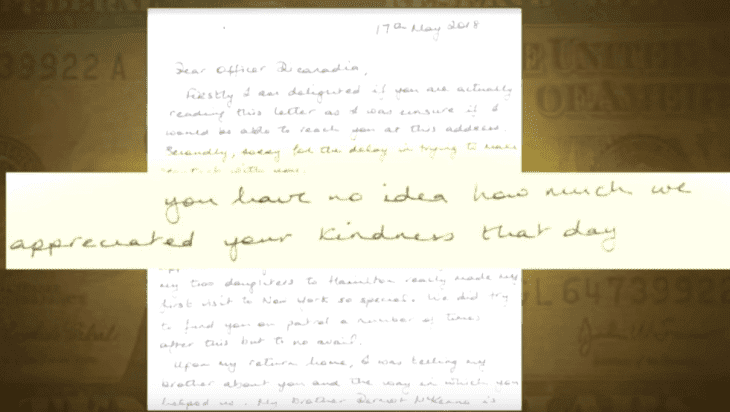 39922 A
UNITED
OF AME
17th May 2018
Dear Officer
Firstly I am delighted if you are actually
reading this letter as I was unsure if I
would be able to reach you at this address.
Secondly, sorry for the delay in trying to make
contact with you.
you have no idea how much we
appreciated your kindness that day
my two daughters to Hamilton really made my
first visit to New York so special. We did try
to find you on patrol a number of times
after this but to no avail.
L 64739922
Upon my return home, I was telling my
brother about you and the way in which you
helped us. My brother Dermot McKenna is